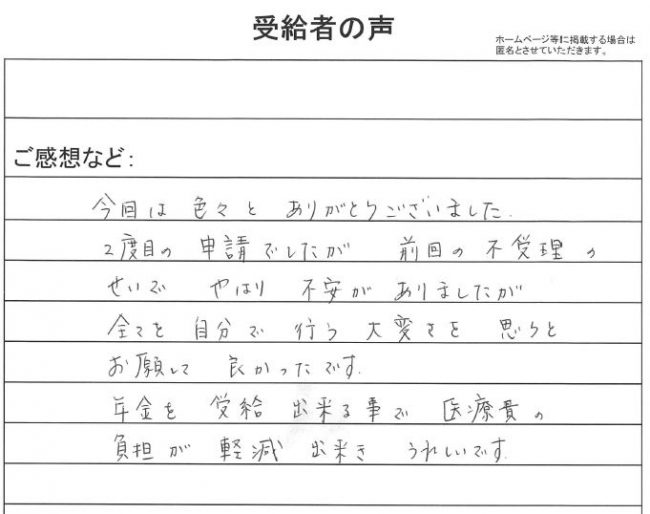 受給者の声
ホームページ等に掲載する場合は
匿名とさせていただきます。
ご感想など:
今回は 色々と ありがとうございました.
2度目の 申請でしたが 前回の 不受理の
せいで やはり 不安が ありましたが
全てを 自分で 行う 大変さを 思うと
お願して 良かったです.
年金を 受給 出来る事で 医療費の
負担が 軽減 出来き うれしいです.